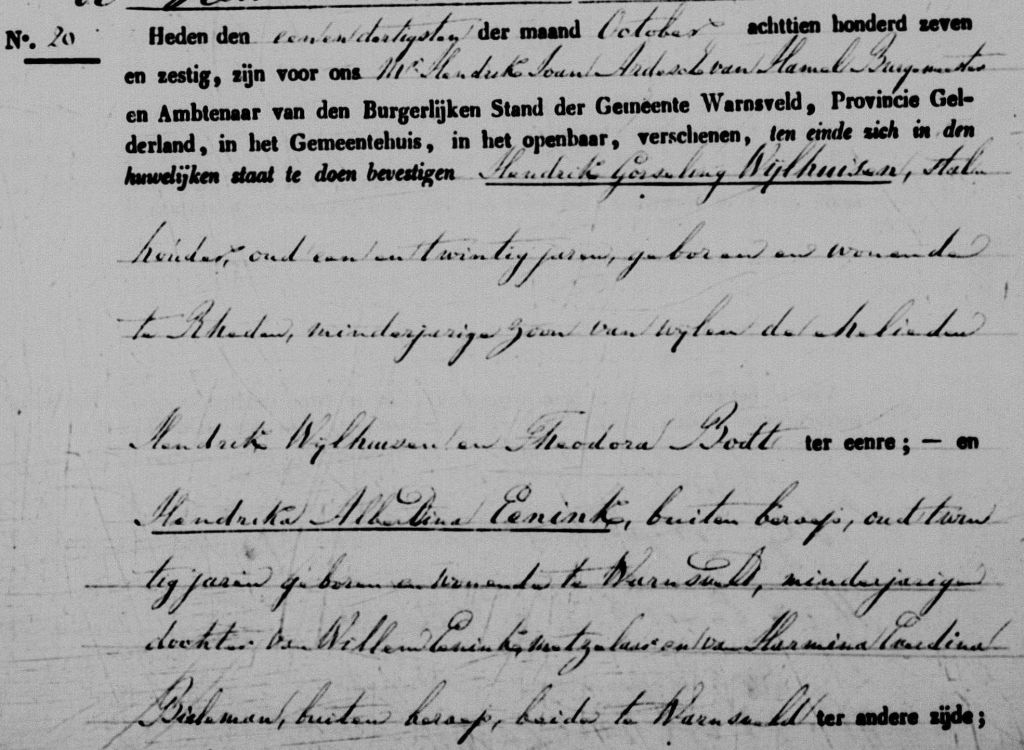 No. 20 Heden den eenendertigsten der maand October achttien honderd zeven
en zestig, zijn voor ons Mr Hendrik Joan Ardesch van Hamel Burgemeester
en Ambtenaar van den Burgerlijken Stand der Gemeente Warnsveld, Provincie Gel-
derland, in het Gemeentehuis, in het openbaar, verschenen, ten einde zich in den
huwelijken staat te doen bevestigen Hendrik Gorseling Wijlhuisen, stal
houder, oud een en twintig jaren, geboren en wonende
te Rheden, minderjarige zoon van wijlen de ehelieden
Hendrik Wijlhuisen en Theodora Bodt ter eenre; — en
Hendrika Alberdina Eenink, buiten beroep, oud twin
tig jaren geboren en wonende te Warnsveld, minderjarige
dochter van Willem Eenink, metzelaar en van Harmina
Bieleman, buiten beroep, beide te Warnsveld ter andere zijde;